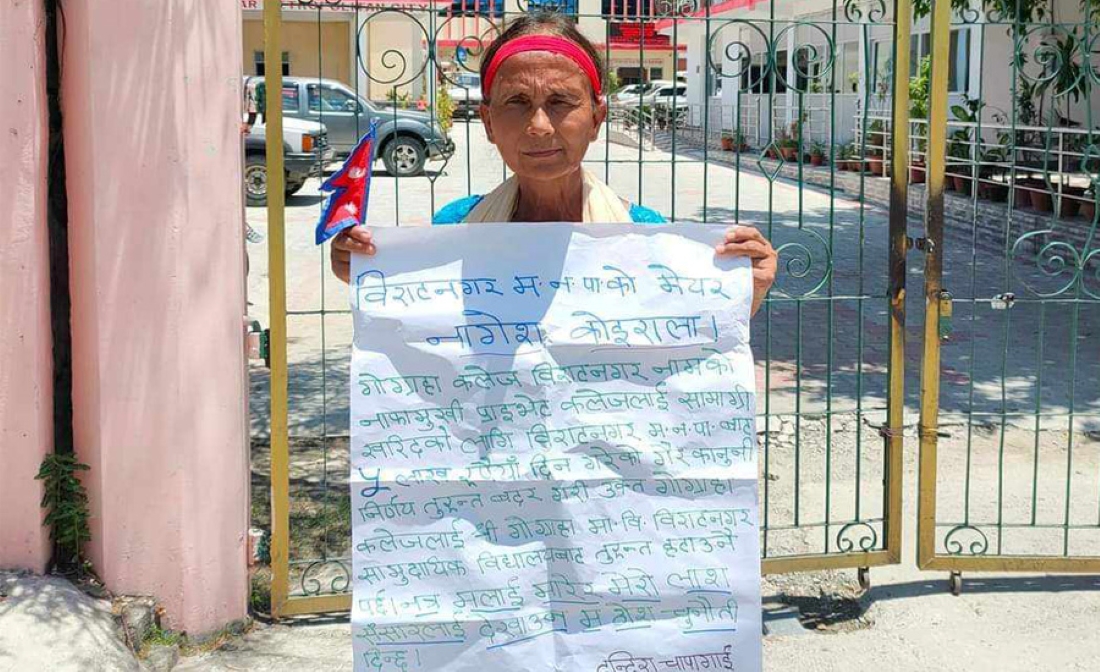 METROPOLITAN CITY
विराटनगर म.न.पा.को मेयर
नागेश कोइराला।
गोग्राहा कलेज विराटनगर नामको
नाफामुखी प्राइभेट कलेजलाई सामाग्री
खरिदको लागि विराटनगर म.न.पा.बाट
५ लाख रूपैयाँ दिन गरेको गैरकानुनी
निर्णय तुरून्त बदर गरी उक्त गोग्राहा
कलेजलाई श्री गोग्राहा मा.वि. विराटनगर
सामुदायिक विद्यालयबाट तुरून्त हटाउनै
पर्छ। नत्र मलाई मारेर मेरो लाश
संसारलाई देखाउन म चुनौती
दिन्छु।
इन्दिरा चापागाई